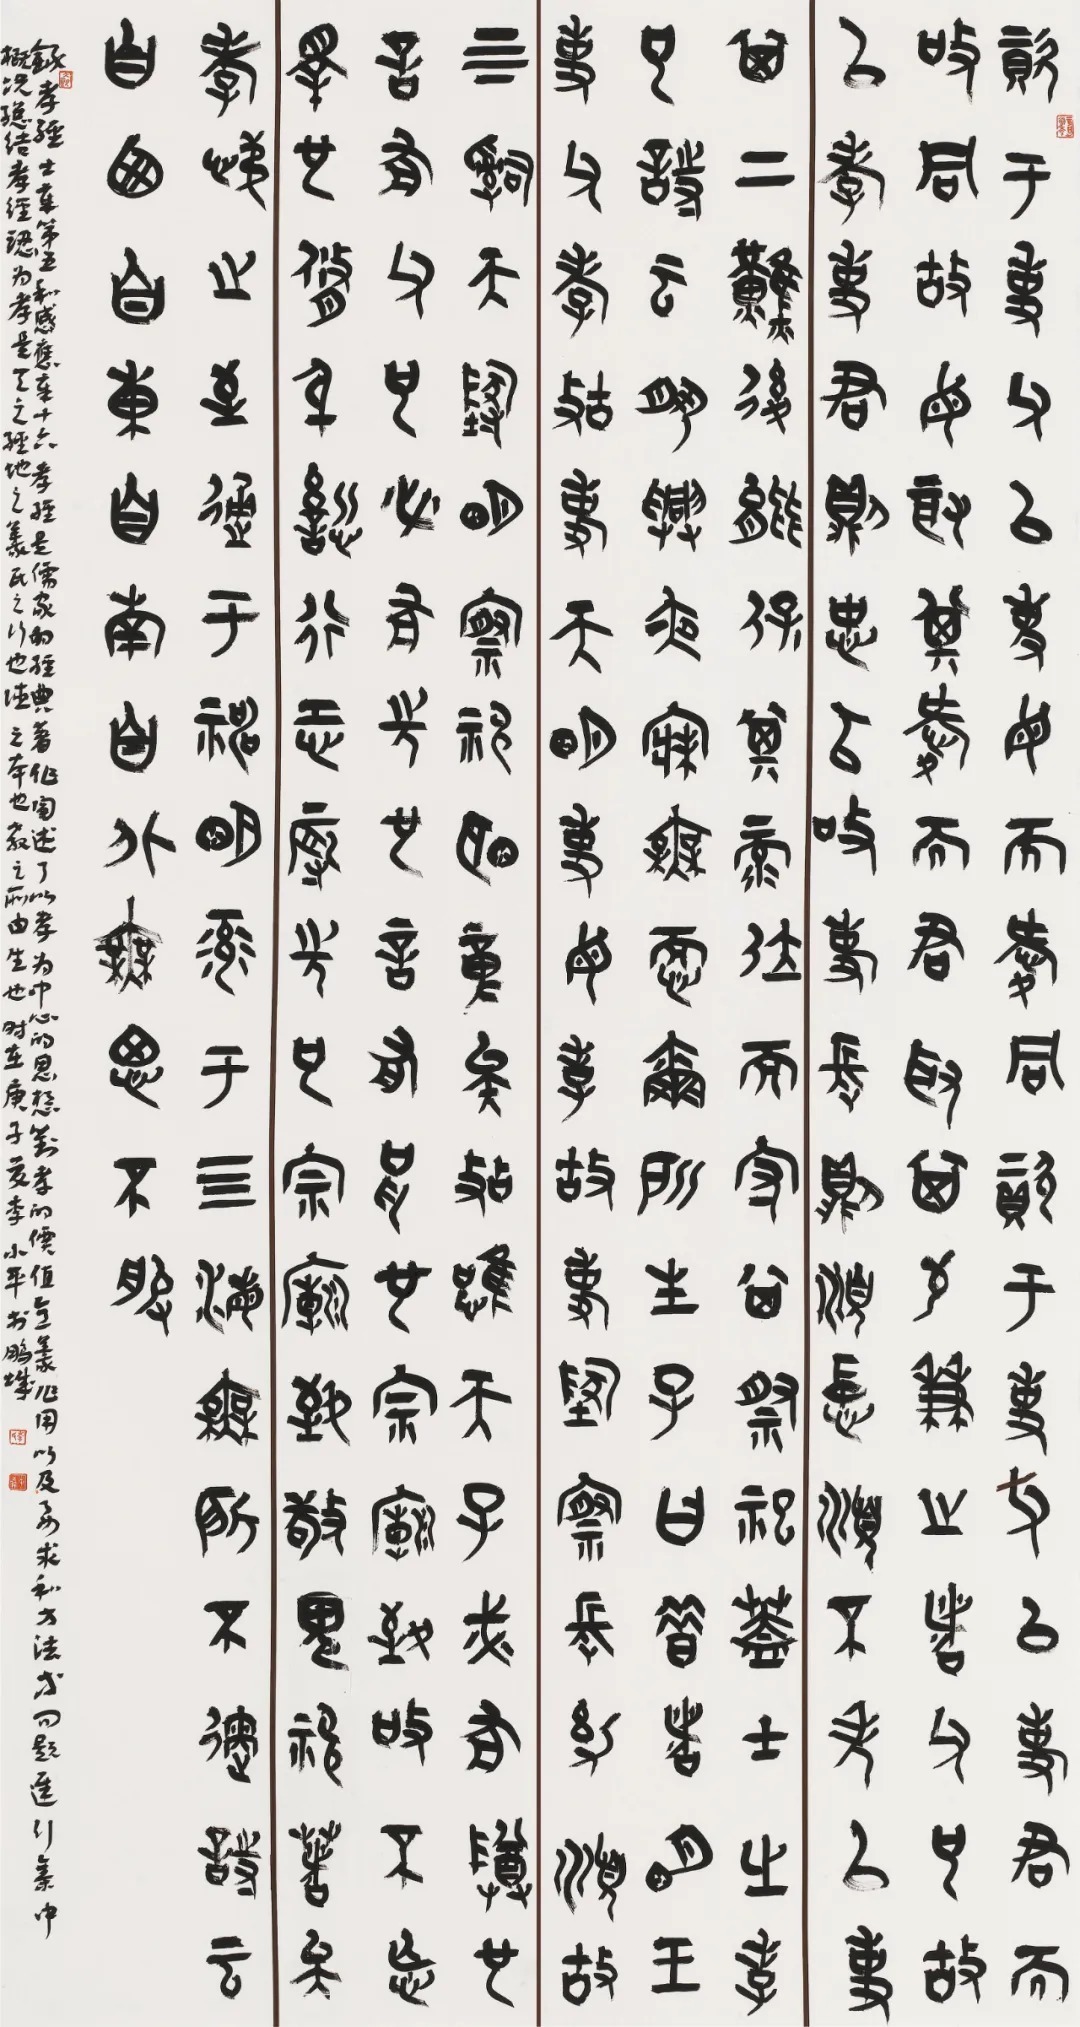 資于事父以事母而愛同資于事父以事君而
敬同故母取其愛而君取其敬兼之者父也故
以孝事君則忠以敬事長則順忠順不失以事
其上然後能保其祿位而守其祭祀蓋士之孝
也詩云夙興夜寐無忝爾所生子曰昔者明王
事父孝故事天明事母孝故事地察長幼順故
上下治天地明察神明章矣故雖天子必有尊也
言有父也必有先也言有兄也宗廟致敬不忘
親也脩身慎行恐辱先也宗廟致敬鬼神著矣
孝悌之至通于神明光于四海無所不通詩云
自西自東自南自北無思不服
錄孝經士章第五和感應章十六孝經是儒家的經典著作闡述了以孝為中心的思想對孝的價值意義作用以及要求和方法等問題進行集中
概况總結孝經認为孝是天之經地之義民之行也德之本也教之所由生也时在庚子夏李小平书鵬城